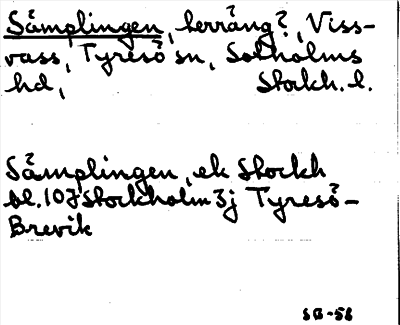 Sämplingen, terräng?, Viss-
vass, Tyresö sn, Sotholms
hd, Stockh. l.
Sämplingen, ek Stockh
bl. 107 Stockholm 3j Tyresö-
Brevik
SB-58